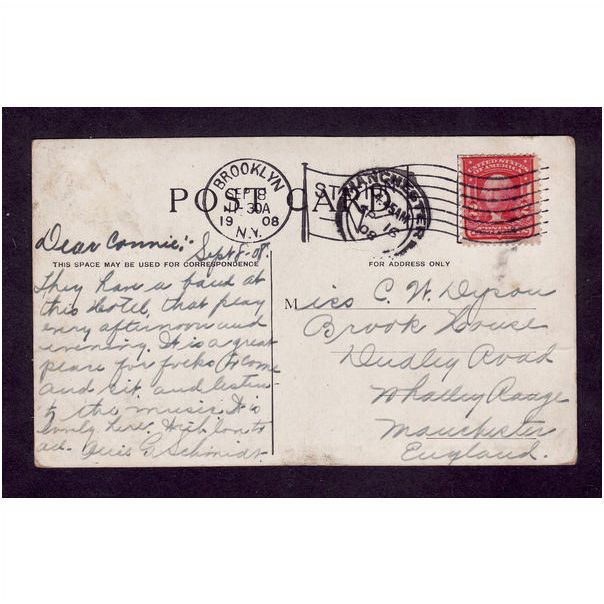 POST CARD
BROOKLYN
SEP 8
11-30A
19 08
N.Y.
STATION
MANCHESTER
UNITED STATES
OF AMERICA
Dear Connie:-
Sept 8-08.
THIS SPACE MAY BE USED FOR CORRESPONDENCE
FOR ADDRESS ONLY
They have a band at
this Hotel, that play
every afternoon and
evening. It is a great
place for folks to come
and sit and listen
to the music. It is
lovely here. With love to
all. G. Schmidt
Miss C. W. Dyson
Brook House
Dudley Road
Whalley Range
Manchester
England.